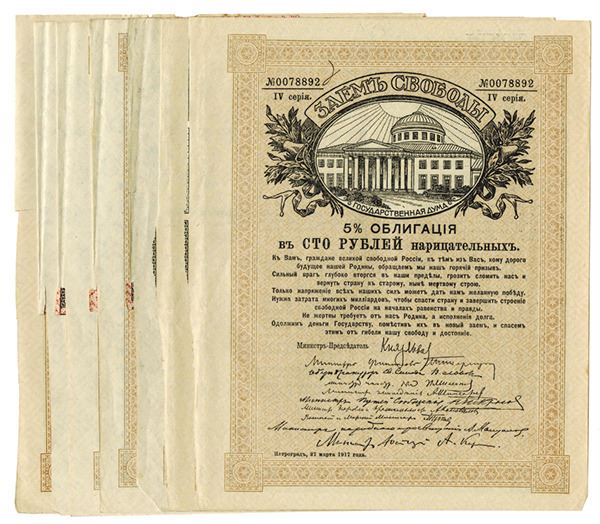 №0078892 №0078892
IV серія. IV серія.
ЗАЕМЪ СВОБОДЫ
ГОСУДАРСТВЕННАЯ ДУМА
5% ОБЛИГАЦІЯ
въ СТО РУБЛЕЙ нарицательныхъ.
Къ Вамъ, граждане великой свободной Россіи, къ тѣмъ изъ Васъ, кому дорого
будущее нашей Родины, обращаемъ мы нашъ горячій призывъ.
Сильный врагъ глубоко вторгся въ наши предѣлы, грозитъ сломить насъ и
вернуть страну къ старому, нынѣ мертвому строю.
Только напряженіе всѣхъ нашихъ силъ можетъ дать намъ желанную побѣду.
Нужна затрата многихъ милліардовъ, чтобы спасти страну и завершить строеніе
свободной Россіи на началахъ равенства и правды.
Не жертвы требуетъ отъ насъ Родина, а исполненія долга.
Одолжимъ деньги Государству, помѣстивъ ихъ въ новый заемъ, и спасемъ
этимъ отъ гибели нашу свободу и достояніе.
Министръ-Предсѣдатель Князь Львовъ
Министръ Финансовъ
Министръ
Министръ
Министръ народнаго просвѣщенія А. Мануиловъ
Министръ Юстиціи А. Кер
Петроградъ, 27 марта 1917 года.